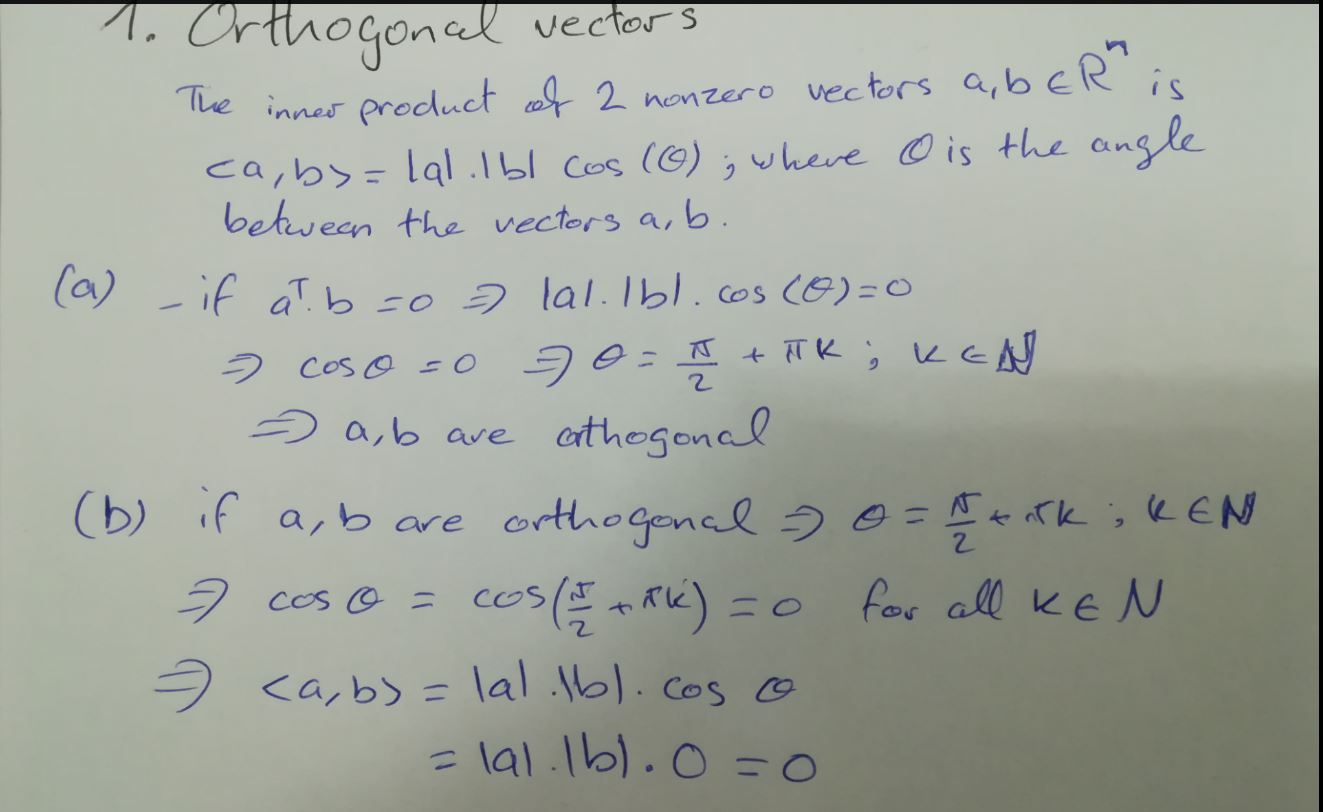 1. Orthogonal vectors
The inner product of 2 nonzero vectors a,b ∈ ℝⁿ is
<a,b> = |a|.|b| cos (θ) ; where θ is the angle
between the vectors a,b.
(a) - if aᵀ.b = 0 ⇒ |a|.|b|. cos (θ) = 0
⇒ cos θ = 0 ⇒ θ = π/2 + πk ; k ∈ ℕ
⇒ a,b are orthogonal
(b) if a,b are orthogonal ⇒ θ = π/2 + πk ; k ∈ ℕ
⇒ cos θ = cos(π/2 + πk) = 0 for all k ∈ N
⇒ <a,b> = |a|.|b|. cos θ
= |a|.|b|. 0 = 0